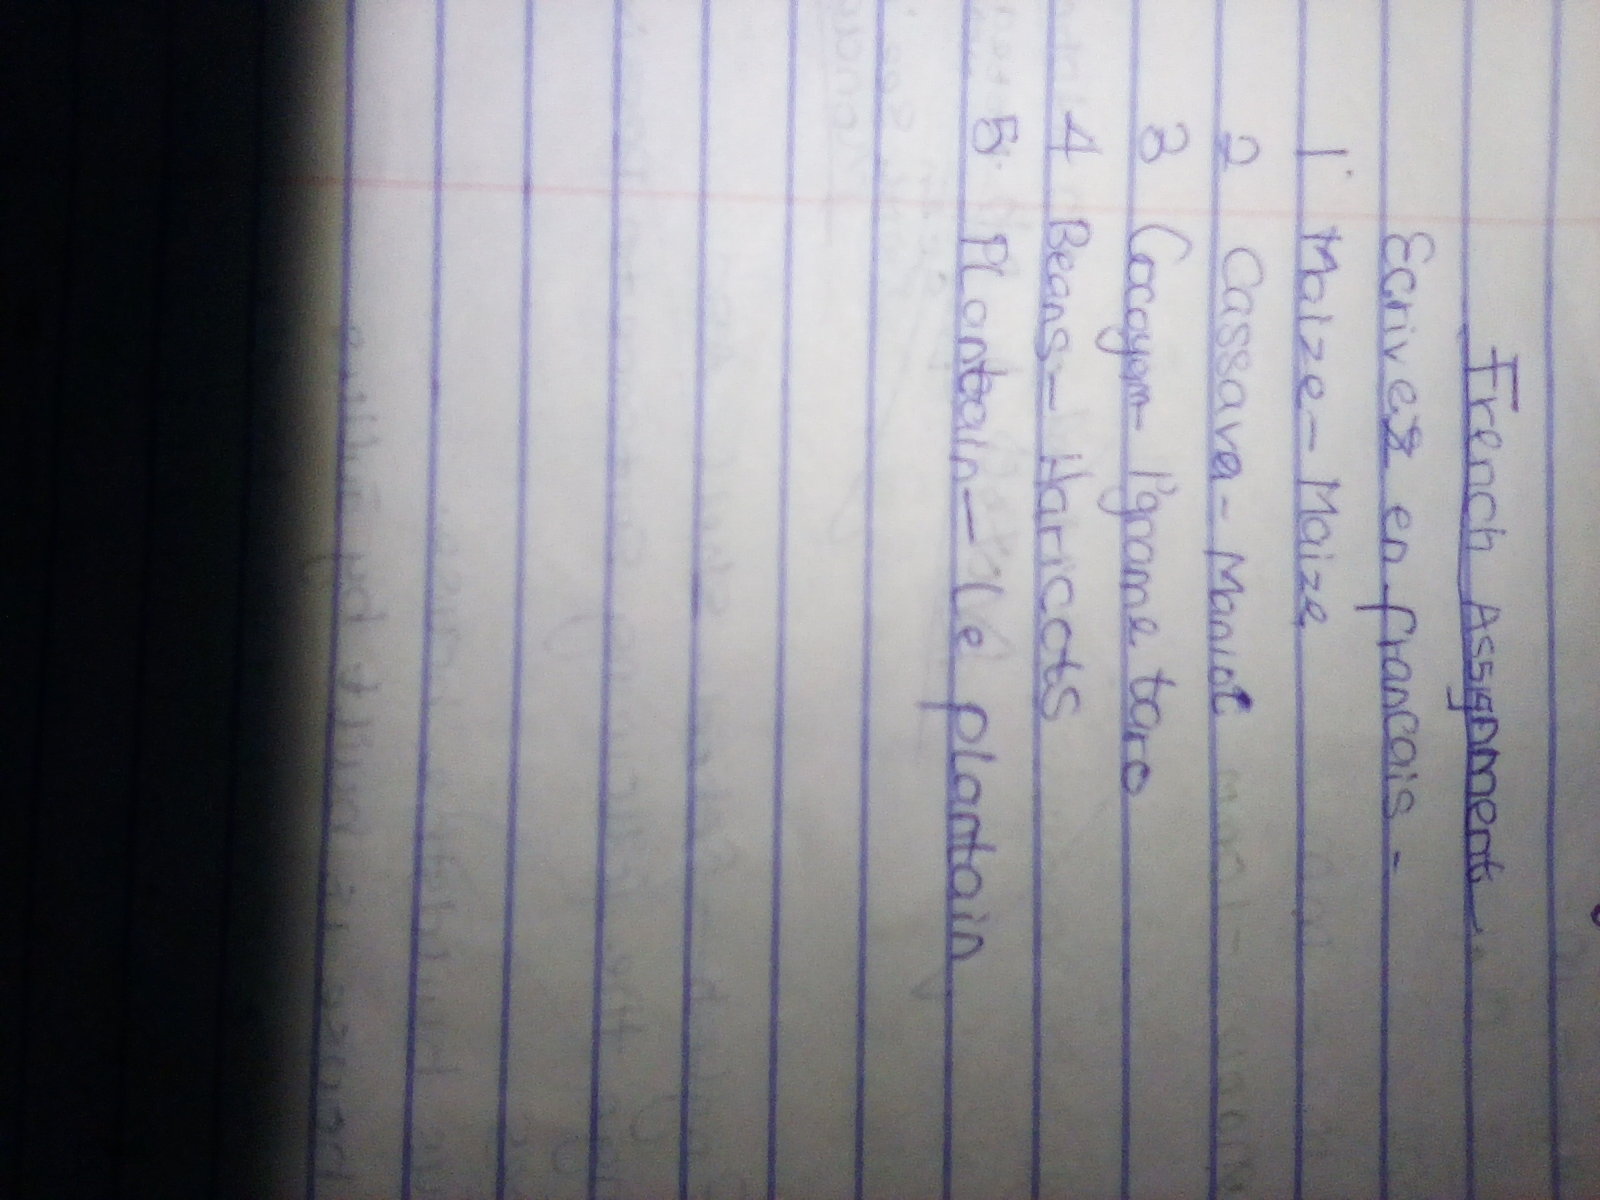 French Assignment.
Ecrivez en francais -
1. Maize - Maize
2 Cassava - Manioc
3 Cocoyam - Igname taro
4 Beans - Haricots
5. Plantain - le plantain